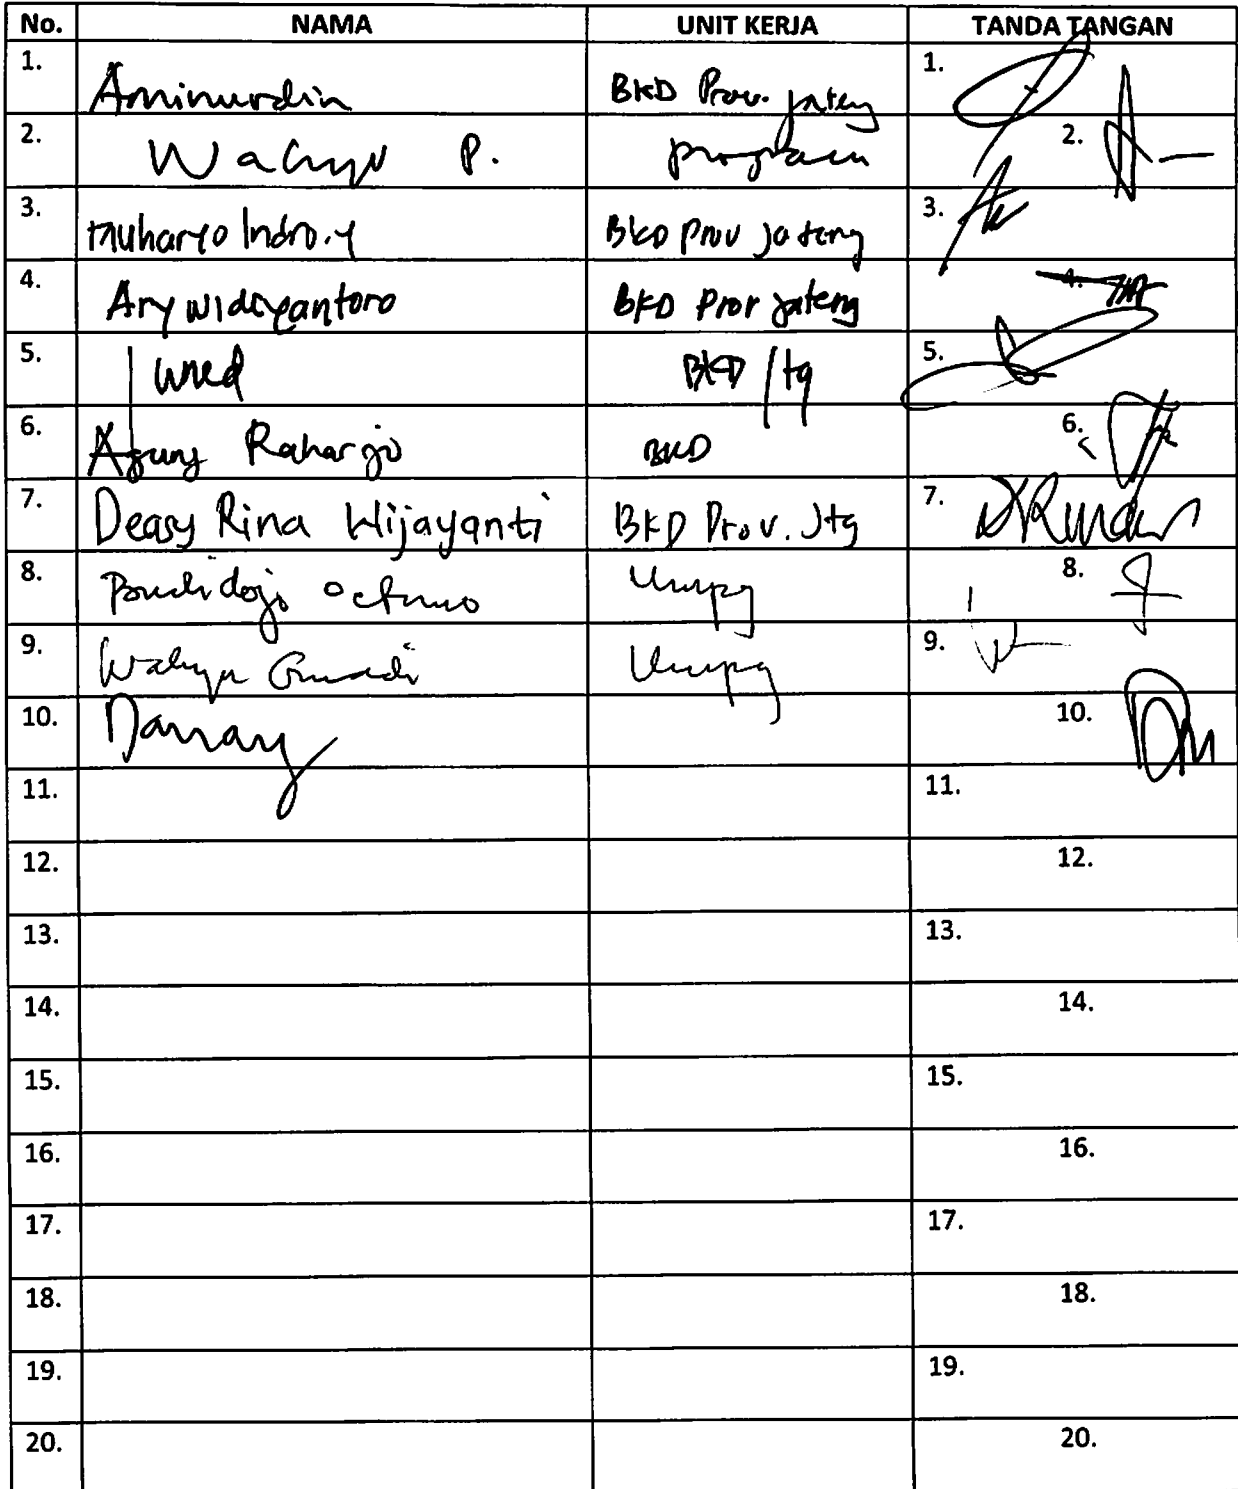 No. NAMA UNIT KERJA TANDA TANGAN
1. Aminurdin BKD Prov. jateng 1.
2. Wahyu P. program 2.
3. Muharyo Indro.y BKD Prov jateng 3.
4. Ary widiyantoro BKD Prov jateng 4.
5. BKD Jtg 5.
6. Agung Raharjo BKD 6.
7. Deasy Rina Wijayanti BKD Prov. Jtg 7.
8. Umpeg 8.
9. Wahyu Umpeg 9.
10. Danang 10.
11. 11.
12. 12.
13. 13.
14. 14.
15. 15.
16. 16.
17. 17.
18. 18.
19. 19.
20. 20.